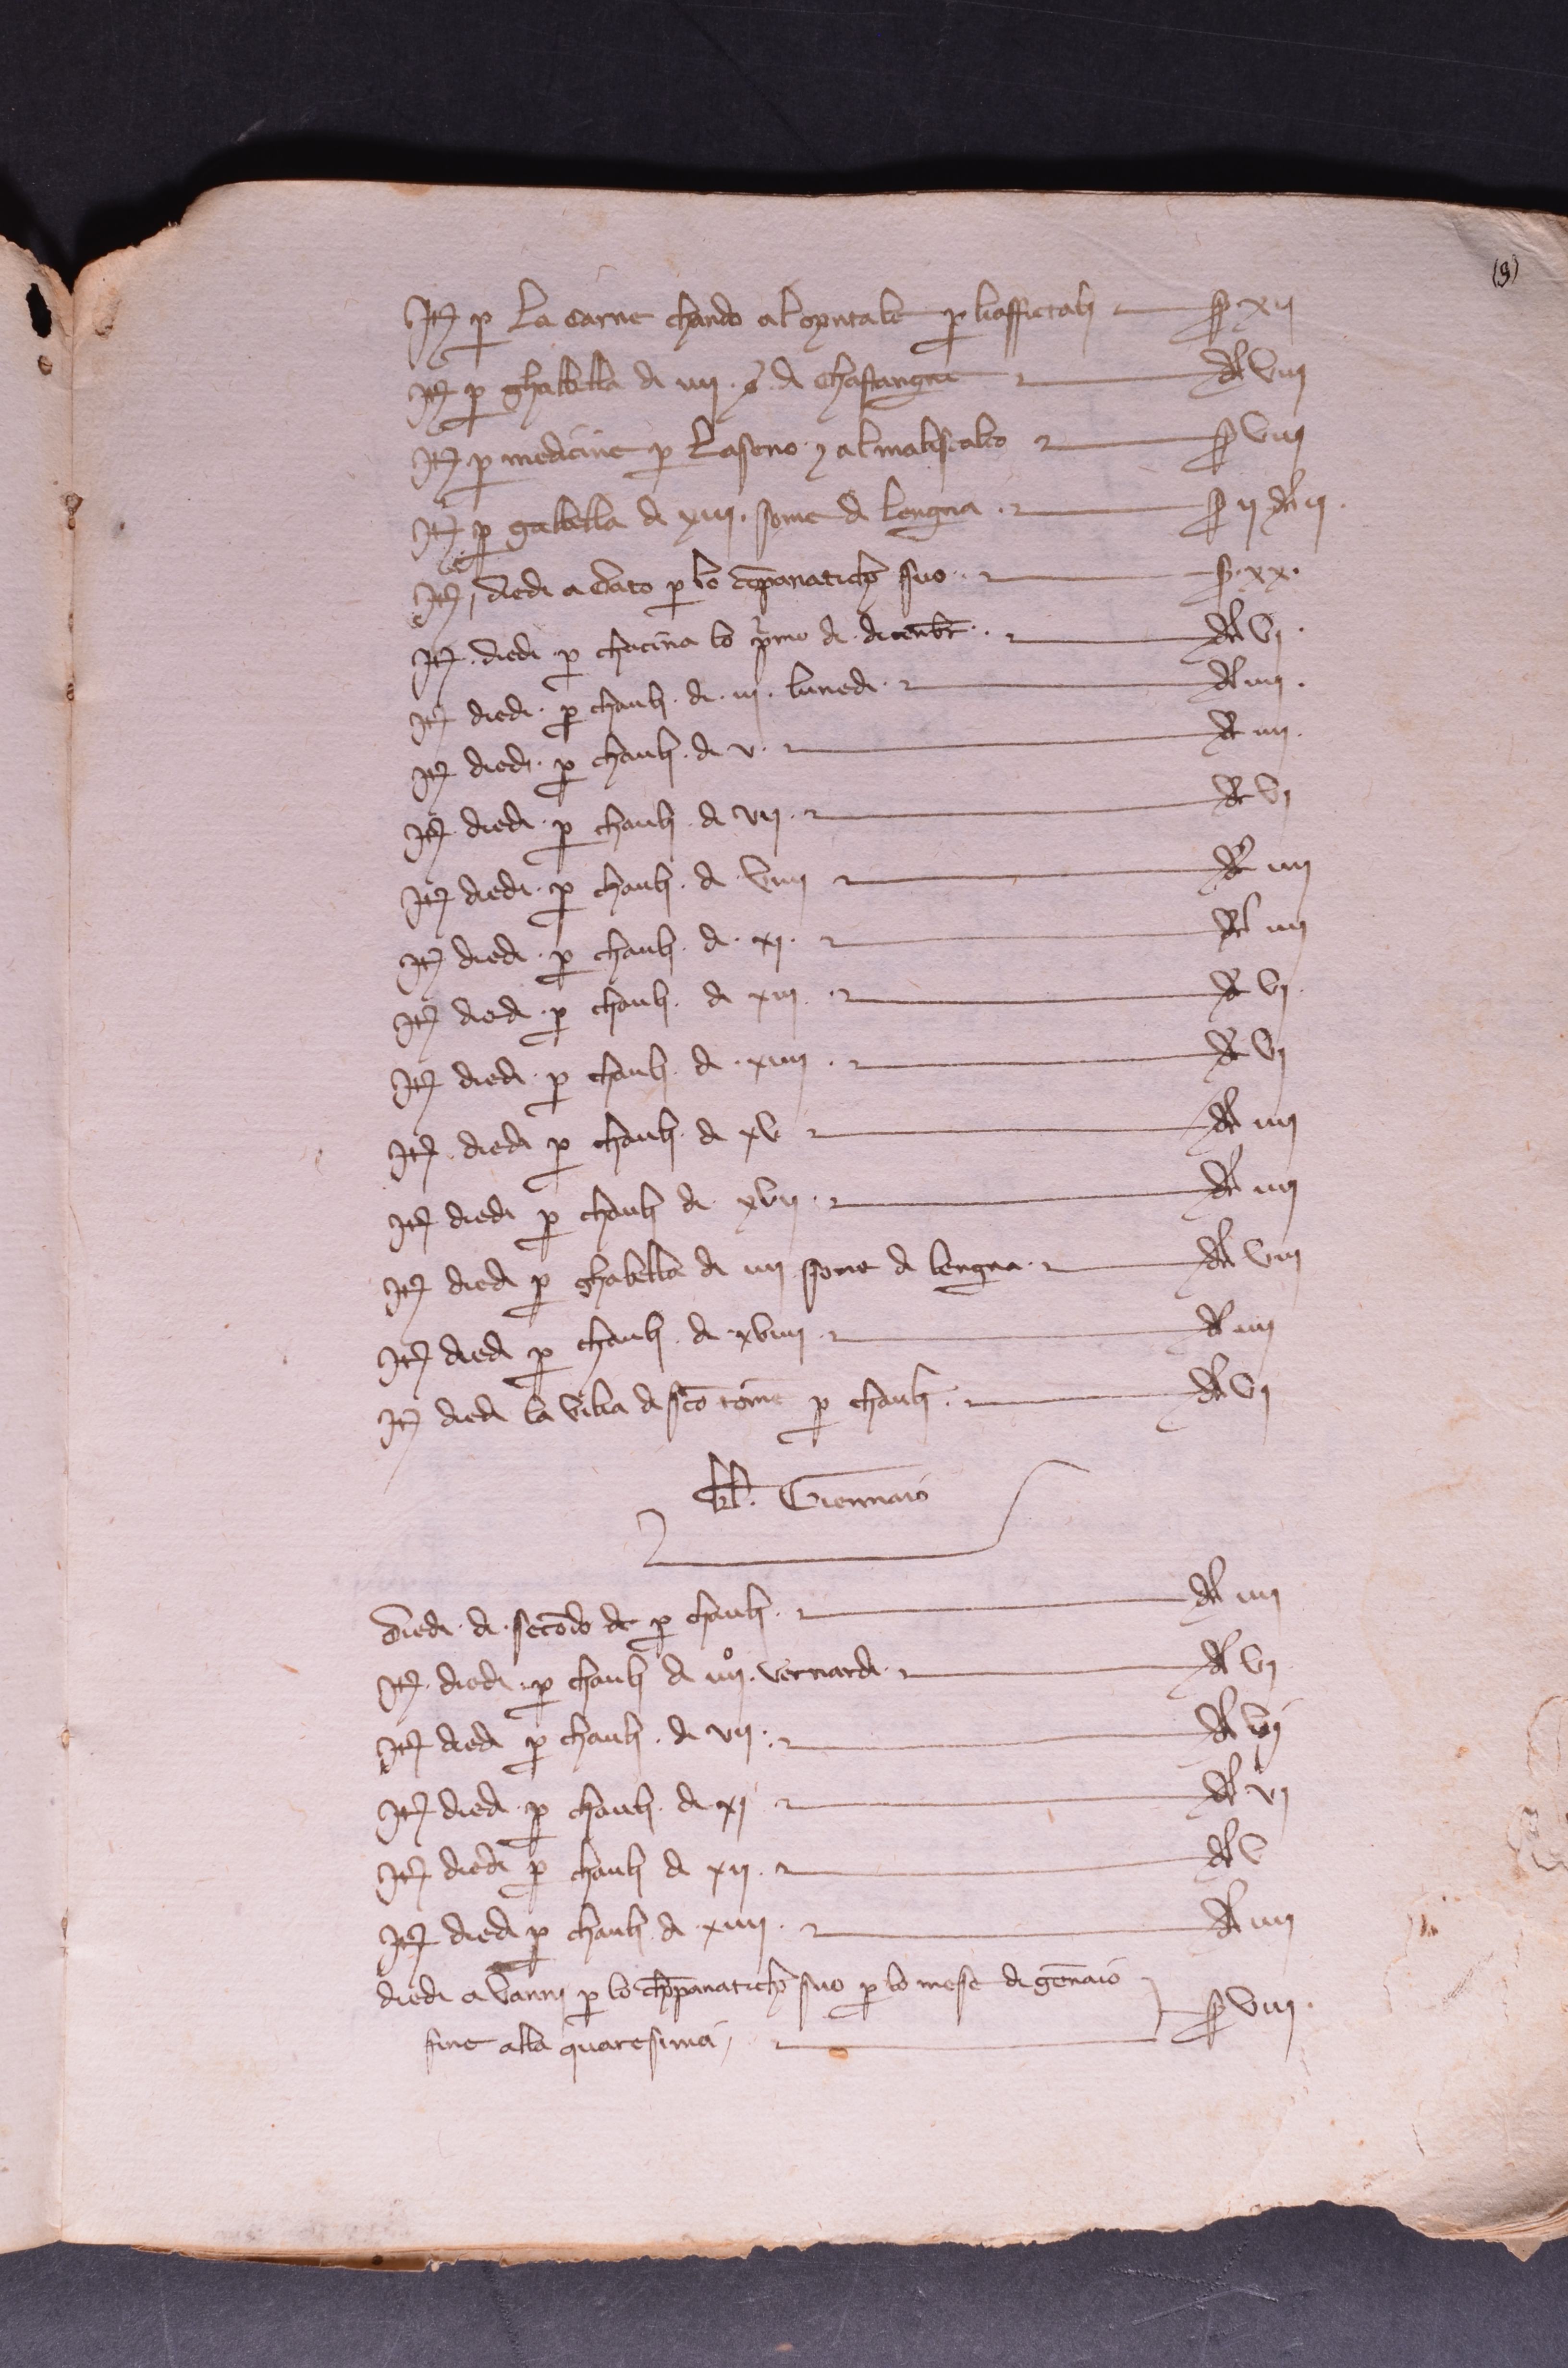 (9)
Itȝ p la carne chando al opitale p li affictali s xij
Itȝ p ghabella di iiij s di chastangne d viij
Itȝ p medicine p l aseno ⁊ al maliscalco s viij
Itȝ p gabella di xiij some di lengna s ij d ij
Itȝ diedi a Cato p lo cōpanaticho suo s xx
Itȝ diedi p chacina lo pⁱmo di dicenbr̄ d vj
Itȝ diedi p chauli di iij lunedi d iiij
Itȝ diedi p chauli di v d iiij
Itȝ diedi p chauli di vij d vj
Itȝ diedi p chauli di viiij d iiij
Itȝ diedi p chauli di xj d iiij
Itȝ diedi p chauli di xiij d vj
Itȝ diedi p chauli di xiiij d vj
Itȝ diedi p chauli di xv d iiij
Itȝ diedi p chauli di xvij d iiij
Itȝ diedi p ghabella di iiij some di lengna d viij
Itȝ diedi p chauli di xviiij d iiij
Itȝ diedi la vilia di sc̄o tōme p chauli d vj
kl. Giennaio
Diedi di secōdo di p chauli d iiij
Itȝ diedi p chauli di iiij° vernardi d vj
Itȝ diedi p chauli di vij d vj
Itȝ diedi p chauli di xj d vj
Itȝ diedi p chauli di xij d v
Itȝ diedi p chauli di xiiij d iiij
diedi a Vanni p lo chōpanaticho suo p lo mese di gēnaio
fine alla quaresima s viij